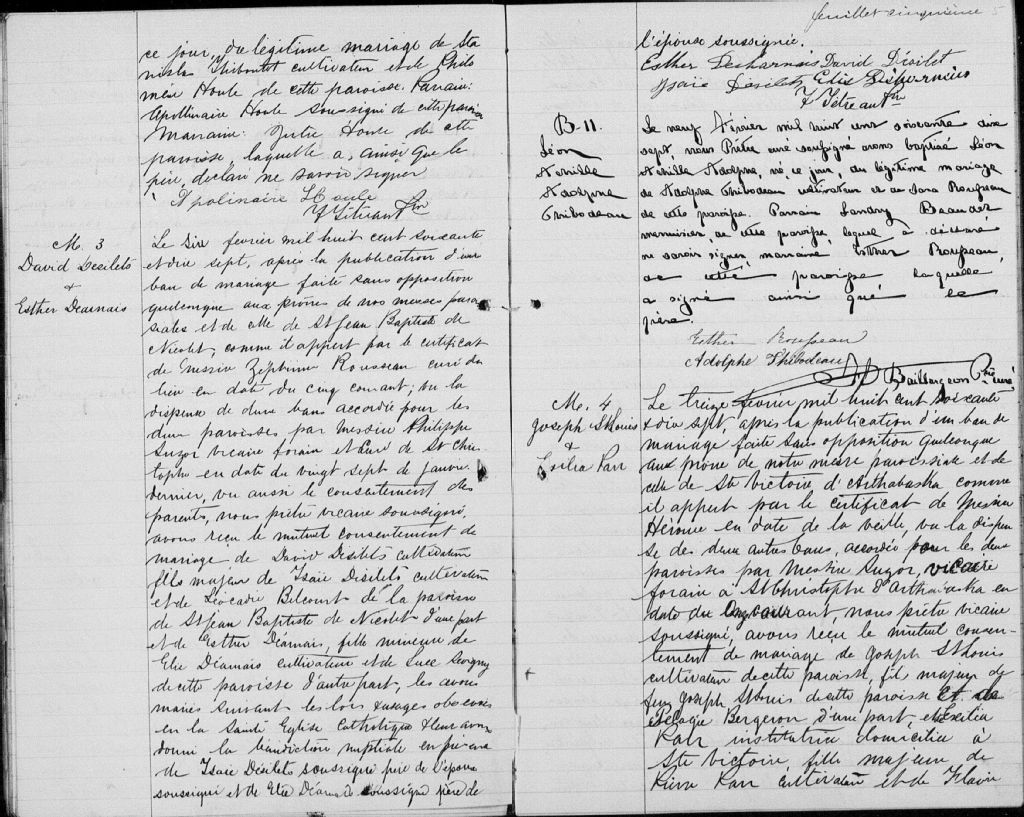 ce jour, du légitime mariage de Sta
nislas Thiboutot cultivateur et de Philo
mène Houle de cette paroisse. Parrain:
Apollinaire Houle soussigné de cette paroisse
Marraine: Julie Houle de cette
paroisse, laquelle a, ainsi que le
père, déclaré ne savoir signer
Apolinaire Houle
M. 3
David Desilets
+
Esther Dearnais
Le six février mil huit cent soixante
et dix sept, après la publication d'un
ban de mariage faite sans opposition
quelconque aux prônes de nos messes parois
siales et de celle de St Jean Baptiste de
Nicolet, comme il appert par le certificat
de Messire Zéphirin Rousseau curé du
lieu en date du cinq courant; vu la
dispense de deux bans accordée pour les
deux paroisses par messire Philippe
Suzor vicaire forain et curé de St Chris
tophe en date du vingt sept de janvier
dernier, vu aussi le consentement des
parents, nous prêtre vicaire soussigné,
avons reçu le mutuel consentement de
mariage de David Désilets cultivateur
fils majeur de Isaïe Désilets cultivateur
et de Léocadie Belcourt de la paroisse
de St Jean Baptiste de Nicolet d'une part
et de Esther Déarnais, fille mineure de
Elie Déarnais cultivateur et de Luce Levigny
de cette paroisse d'autre part, les avons
mariés suivant les lois & usages observés
en la Sainte Eglise Catholique & leur avons
donné la bénédiction nuptiale en présence
de Isaïe Désilets soussigné père de l'époux
soussigné et de Elie Déarnais soussigné père de
feuillet cinquième 5
l'épouse soussignée.
Esther Desharnais David Désilet
Isaïe Désilets Elie Desharnais
B-11.
Léon
Achille
Adolphe
Thibodeau
Le neuf Février mil huit cent soixante dix
sept, nous Prêtre curé soussigné avons baptisé Léon
Achille Adolphe, né, ce jour, du légitime mariage
de Adolphe Thibodeau cultivateur et de Sara Rousseau
de cette paroisse. Parrain Landry Beaudet
menuisier, de cette paroisse, lequel a déclaré
ne savoir signer, marraine, Esther Rousseau,
de cette paroisse laquelle
a signé ainsi que le
père.
Esther Rousseau
Adolphe Thibodeau
Baillargeon Ptre curé
M. 4
Joseph St Louis
+
Exilia Parr
Le treize février mil huit cent soixante
& dix sept, après la publication d'un ban de
mariage faite sans opposition quelconque
aux prône de notre messe paroissiale et de
celle de Ste Victoire d'Arthabaska comme
il appert par le certificat de Messire
Héroux en date de la veille, vu la dispen
se des deux autres bans, accordée pour les deux
paroisses par Messire Suzor, vicaire
forain à St Christophe d'Arthabaska en
date du courant, nous prêtre vicaire
soussigné, avons reçu le mutuel consen
tement de mariage de Joseph St Louis
cultivateur de cette paroisse, fils majeur de
feu Joseph St Louis de cette paroisse et de
Pélagie Bergeron d'une part, et Exilia
Parr institutrice domiciliée à
Ste Victoire, fille majeure de
Pierre Parr cultivateur et de Flavie